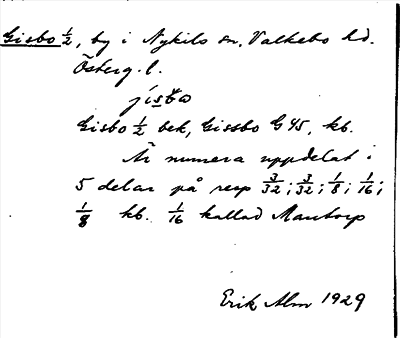 Gisbo ½, by i Nykils sn. Valkebo hd.
Österg. l.
jisbo
Gisbo ½ bek, Gissbo G 45, kb.
Är numera uppdelat i
5 delar på resp 3/32; 3/32; 1/8; 1/16;
1/8 kb. 1/16 kallad Mantorp
Erik Alm 1929